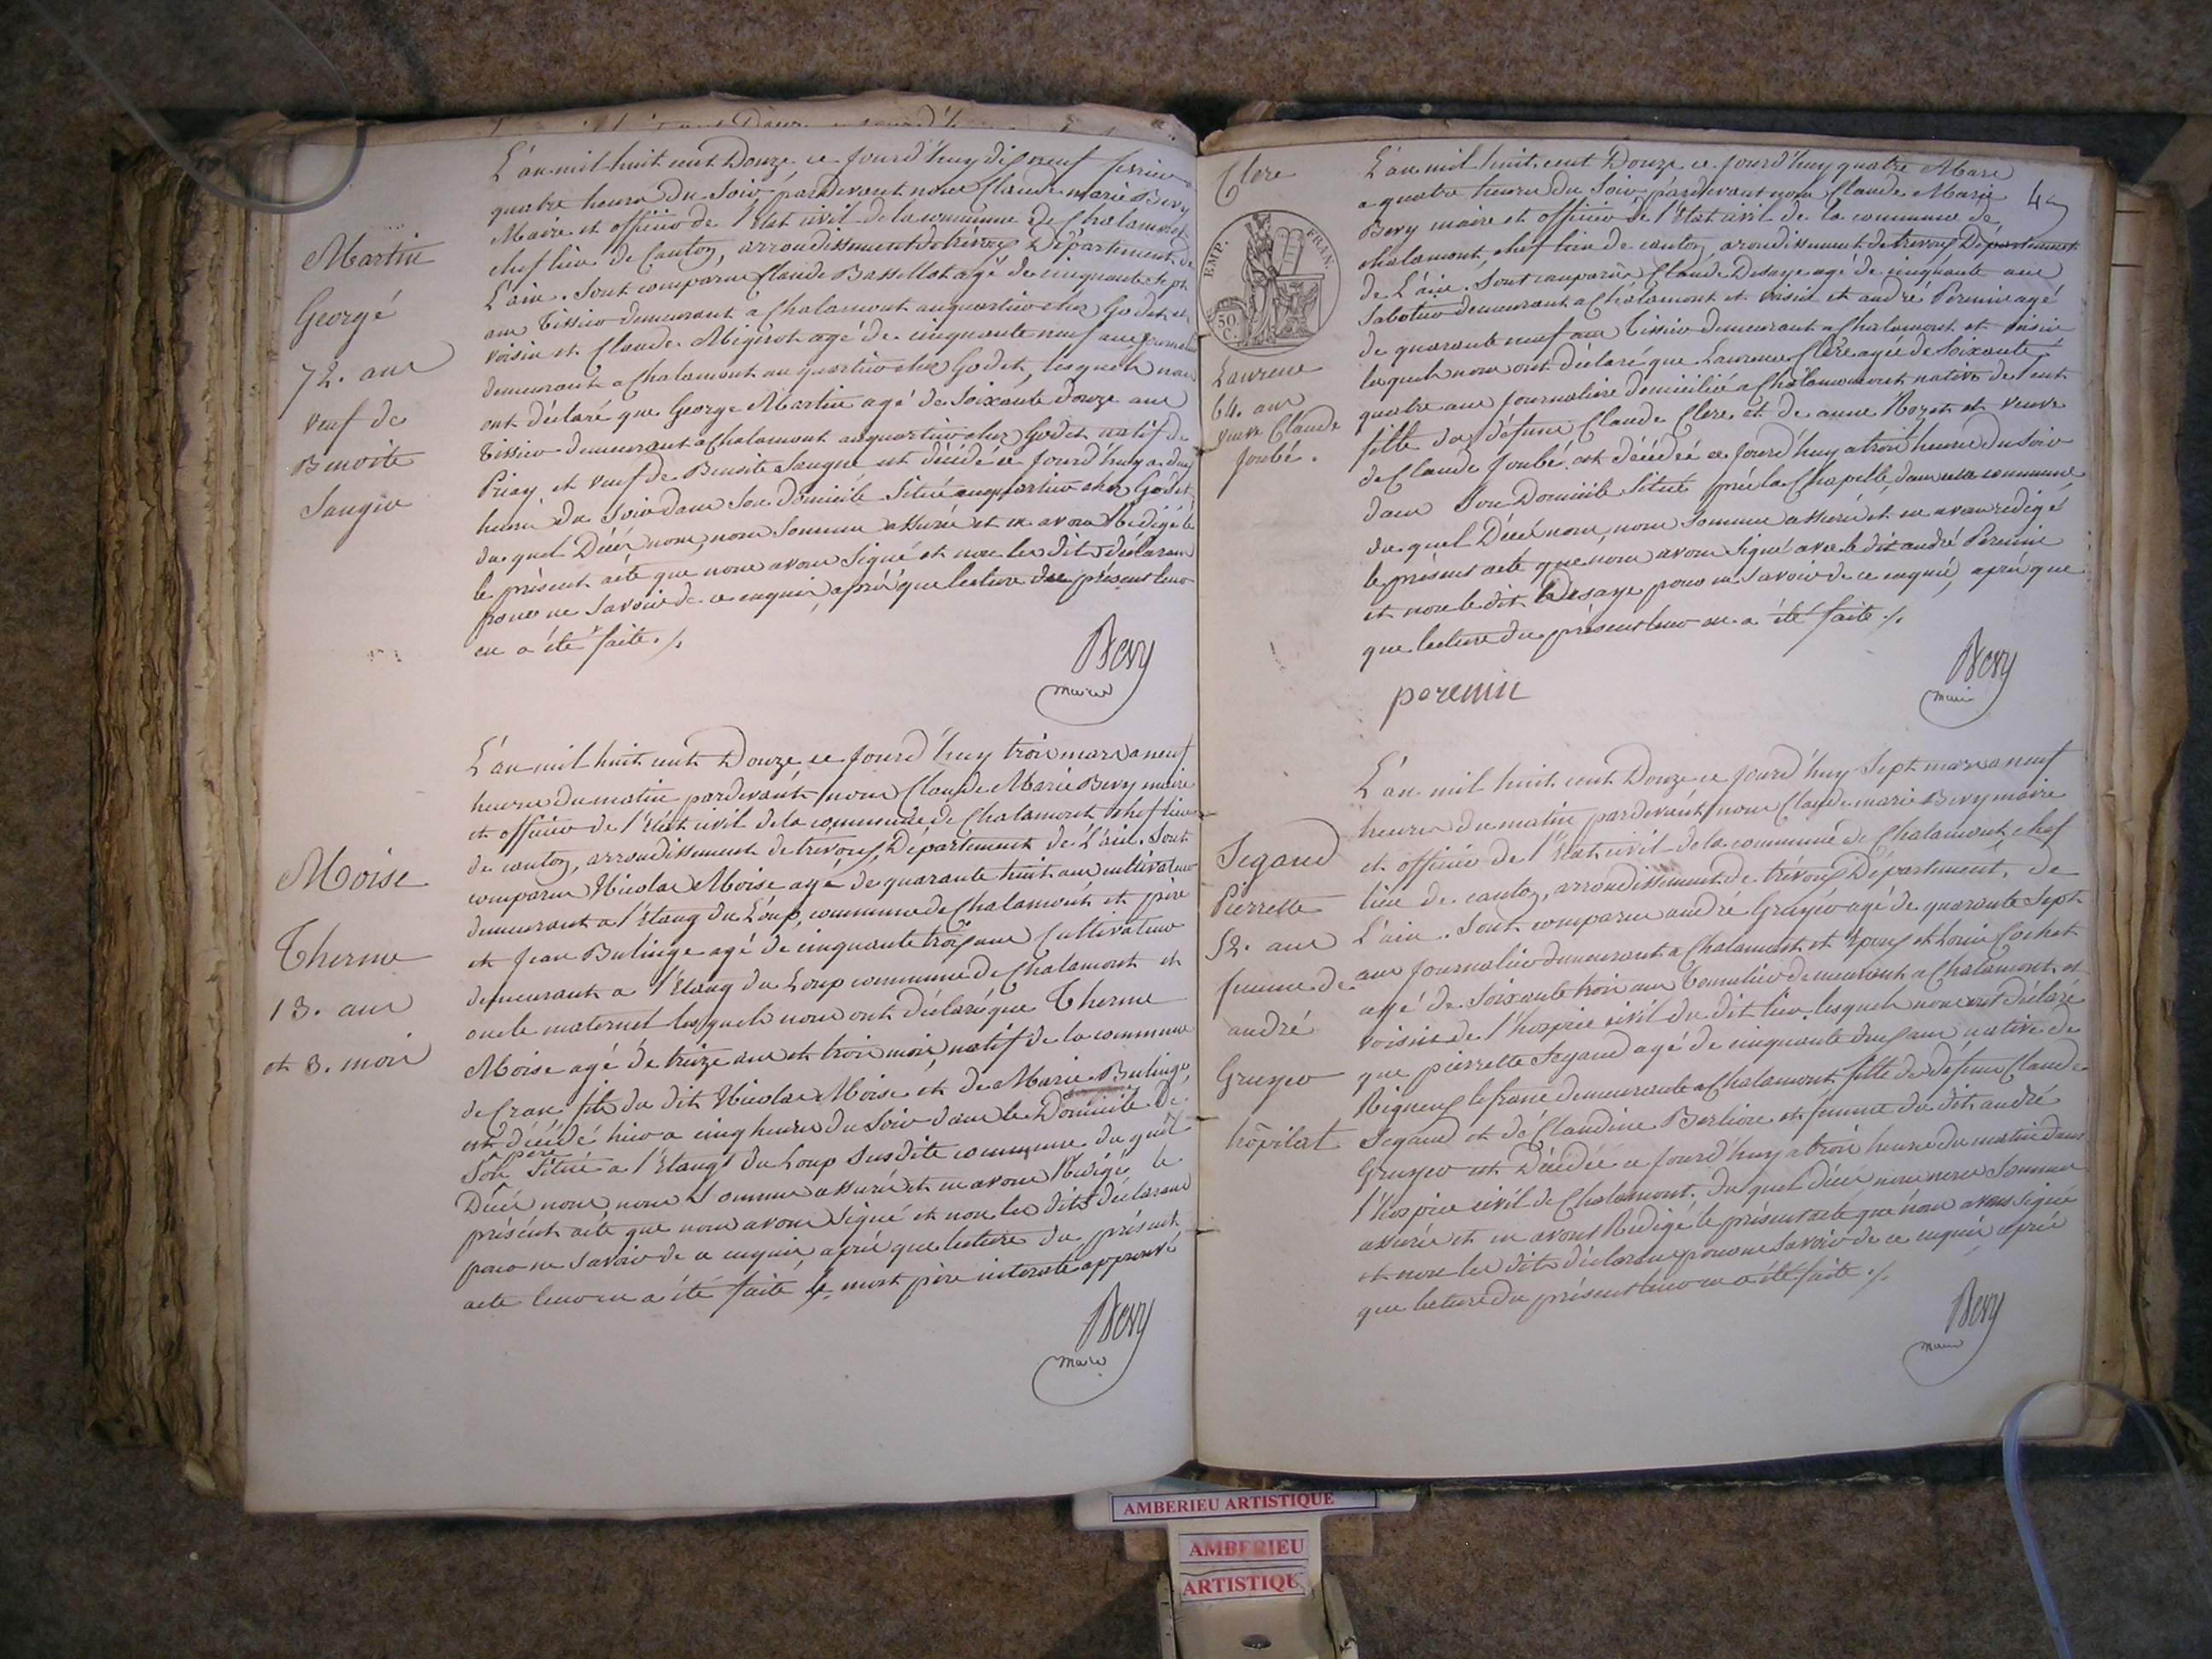 Martin
George
72. ans
veuf de
Benoite
L'an mil huit cent Douze ce jourd'huy dix neuf fevrier a
quatre heures du Soir pardevant nous Claude marie Bevy
Maire et officier de l'Etat civil de la commune de Chalamont
chef lieu de Canton, arrondissement de trévoux Département de
L'ain. Sont comparus Claude Bassellat agé de cinquante Sept
ans Tissier demeurant a Chalamont au quartier chez Godet et
voisin et Claude Migirot agé de cinquante neuf ans journalier
demeurant a Chalamont au quartier chez Godet, lesquels nous
ont déclaré que George Martin agé de Soixante douze ans
Tissier demeurant a Chalamont au quartier chez Godet natif de
Priay et veuf de Benoite est décédé ce jourd'huy a deux
heures du Soir dans Son domicile Situé au quartier chez Godet
du quel Décès nous, nous Sommes assuré et en avons Rédigé
le présent acte que nous avons Signé et non les dits déclarans
pour ne Savoir de ce enquis, après que lecture du présent leur
en a été faite ./.
Bevy
maire
Moise
Therme
13. ans
et 3. mois
L'an mil huit cent Douze ce jourd'huy trois mars a neuf
heures du matin pardevant nous Claude Marie Bevy maire
et officier de l'Etat civil de la commune de Chalamont chef lieu
de canton, arrondissement de trévoux, Département de L'ain. Sont
comparus Nicolas Moise agé de quarante huit ans cultivateur
demeurant a l'Etang du Loup, commune de Chalamont et père
et Jean Bulinge agé de cinquante trois ans Cultivateur
demeurant a l'Etang du Loup commune de Chalamont et
oncle maternel lesquels nous ont déclaré que Therme
Moise agé de treize ans et trois mois, natif de la commune
de Cran fils du dit Nicolas Moise et de Marie Bulinge,
est décédé hier a cinq heures du Soir dans le Domicile de
père
Son Situé a l'Etang du Loup Susdite commune du quel
Décès nous, nous Sommes assuré et en avons Rédigé le
présent acte que nous avons Signé et non les dits déclarans
pour ne Savoir de ce enquis, après que lecture du présent
acte leur en a été faite, le mot père interligné approuvé
Bevy
maire
Clere
EMP. FRAN.
50 C.
Laurence
64. ans
veuve Claude
Joubé.
L'an mil huit cent Douze ce jourd'huy quatre Mars
a quatre heures du Soir pardevant nous Claude Marie
Bevy maire et officier de l'Etat civil de la commune de
chalamont, chef lieu de canton, arrondissement de trevoux Département
de L'ain. Sont comparus Claude Desaye agé de cinquante ans
Sabotier demeurant a Chalamont et voisin et andré Peremin agé
de quarante neuf ans Tissier demeurant a Chalamont et voisin
lesquels nous ont déclaré que Laurence Clere agée de Soixante
quatre ans journalière domiciliée a Chalamont native de
fille des défunts Claude Clere et de anne Rozet et veuve
de Claude Joubé est décédée ce jourd'huy a trois heures du Soir
dans Son Domicile Situé près la Chapelle, dans cette commune,
du quel Décès nous, nous Sommes assuré et en avons redigé
le présent acte que nous avons Signé avec le dit andré Peremin
et non le dit Desaye pour ne Savoir de ce enquis, après que
que lecture du présent leur en a été faite ./.
peremin
Bevy
maire
Segaud
Pierrette
52. ans
femme de
andré
Gruyer
hôpital
L'an mil huit cent Douze ce jourd'huy Sept mars a neuf
heures du matin pardevant nous Claude marie Bevy maire
et officier de l'Etat civil de la commune de Chalamont, chef
lieu de canton, arrondissement de trévoux Département, de
L'ain. Sont comparus andré Gruyer agé de quarante Sept
ans journalier demeurant a Chalamont et Epoux et Louis Cochet
agé de Soixante trois ans Tonnelier demeurant a Chalamont et
voisin de l'hospice civil du dit lieu lesquels nous ont déclaré
que pierrette Segaud agé de cinquante deux ans native de
Rigneux le franc demeurante a Chalamont fille de défunt Claude
Segaud et de Claudine Berlion et femme du dit andré
Gruyer est Décédée ce jourd'huy a trois heures du matin dans
l'hospice civil de Chalamont. du quel décès nous nous Sommes
assuré et en avons Rédigé le présent acte que nous avons Signé
et non les dits déclarans pour ne Savoir de ce enquis après
que lecture du présent leur en a été faite ./.
Bevy
maire
AMBERIEU ARTISTIQUE
AMBERIEU
ARTISTIQUE